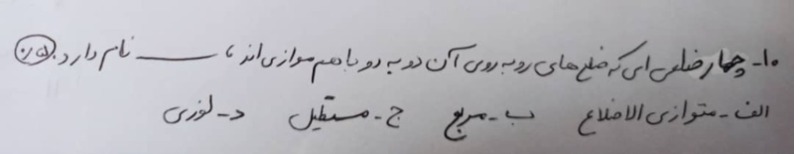 ۱۰- چهار ضلعی ای که ضلع های روبه روی آن دو به دو با هم موازی اند، ــــــــ نام دارد. ۰/۵
الف- متوازی الاضلاع ب- مربع ج- مستطیل د- لوزی